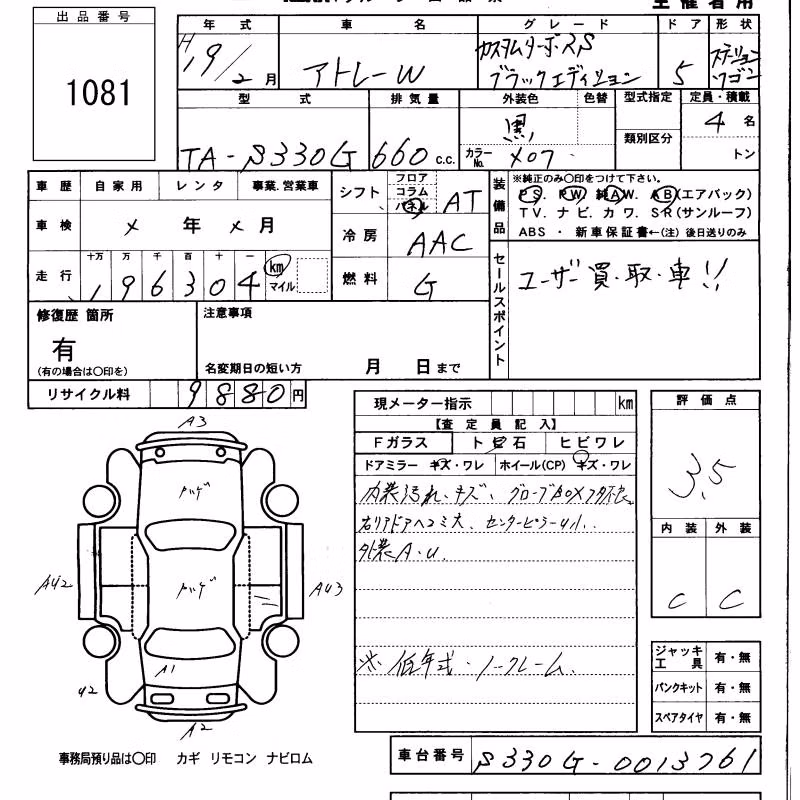 主催者用
出品番号
1081
年式 車名 グレード ドア 形状
H19/2月 アトレーW カスタムターボRS ブラックエディション 5 ステーションワゴン
型式 排気量 外装色 色替 型式指定 定員・積載
TA-S330G 660 c.c. 黒 カラーNo. X07 類別区分 4名 トン
車歴 自家用 レンタ 事業.営業車
車検 × 年 × 月
走行 十万 万 千 百 十 一
196304 km マイル
シフト フロア コラム パネル AT
冷房 AAC
燃料 G
装備品
※純正のみ〇印をつけて下さい。
PS. PW. 純AW. AB(エアバック)
TV. ナビ. カワ. SR(サンルーフ)
ABS ・ 新車保証書←(注) 後日送りのみ
セールスポイント
ユーザー買取車!!
修復歴 箇所
有
(有の場合は〇印を)
注意事項
名変期日の短い方 月 日まで
リサイクル料 9880円
現メーター指示 km
【査定員記入】
Fガラス トビ石 ヒビワレ
ドアミラー キズ・ワレ ホイール(CP) キズ・ワレ
内装汚れ、キズ、グローブBOXフタ不良
右リアドアヘコミ大、センターピラーU小.
外装A.U.
※低年式・ノークレーム.
評価点
3.5
内装 外装
C C
ジャッキ工具 有・無
パンクキット 有・無
スペアタイヤ 有・無
A3
ハゲ
A42
ハゲ
A43
A1
42
A2
事務局預り品は〇印 カギ リモコン ナビロム
車台番号 S330G-0013761